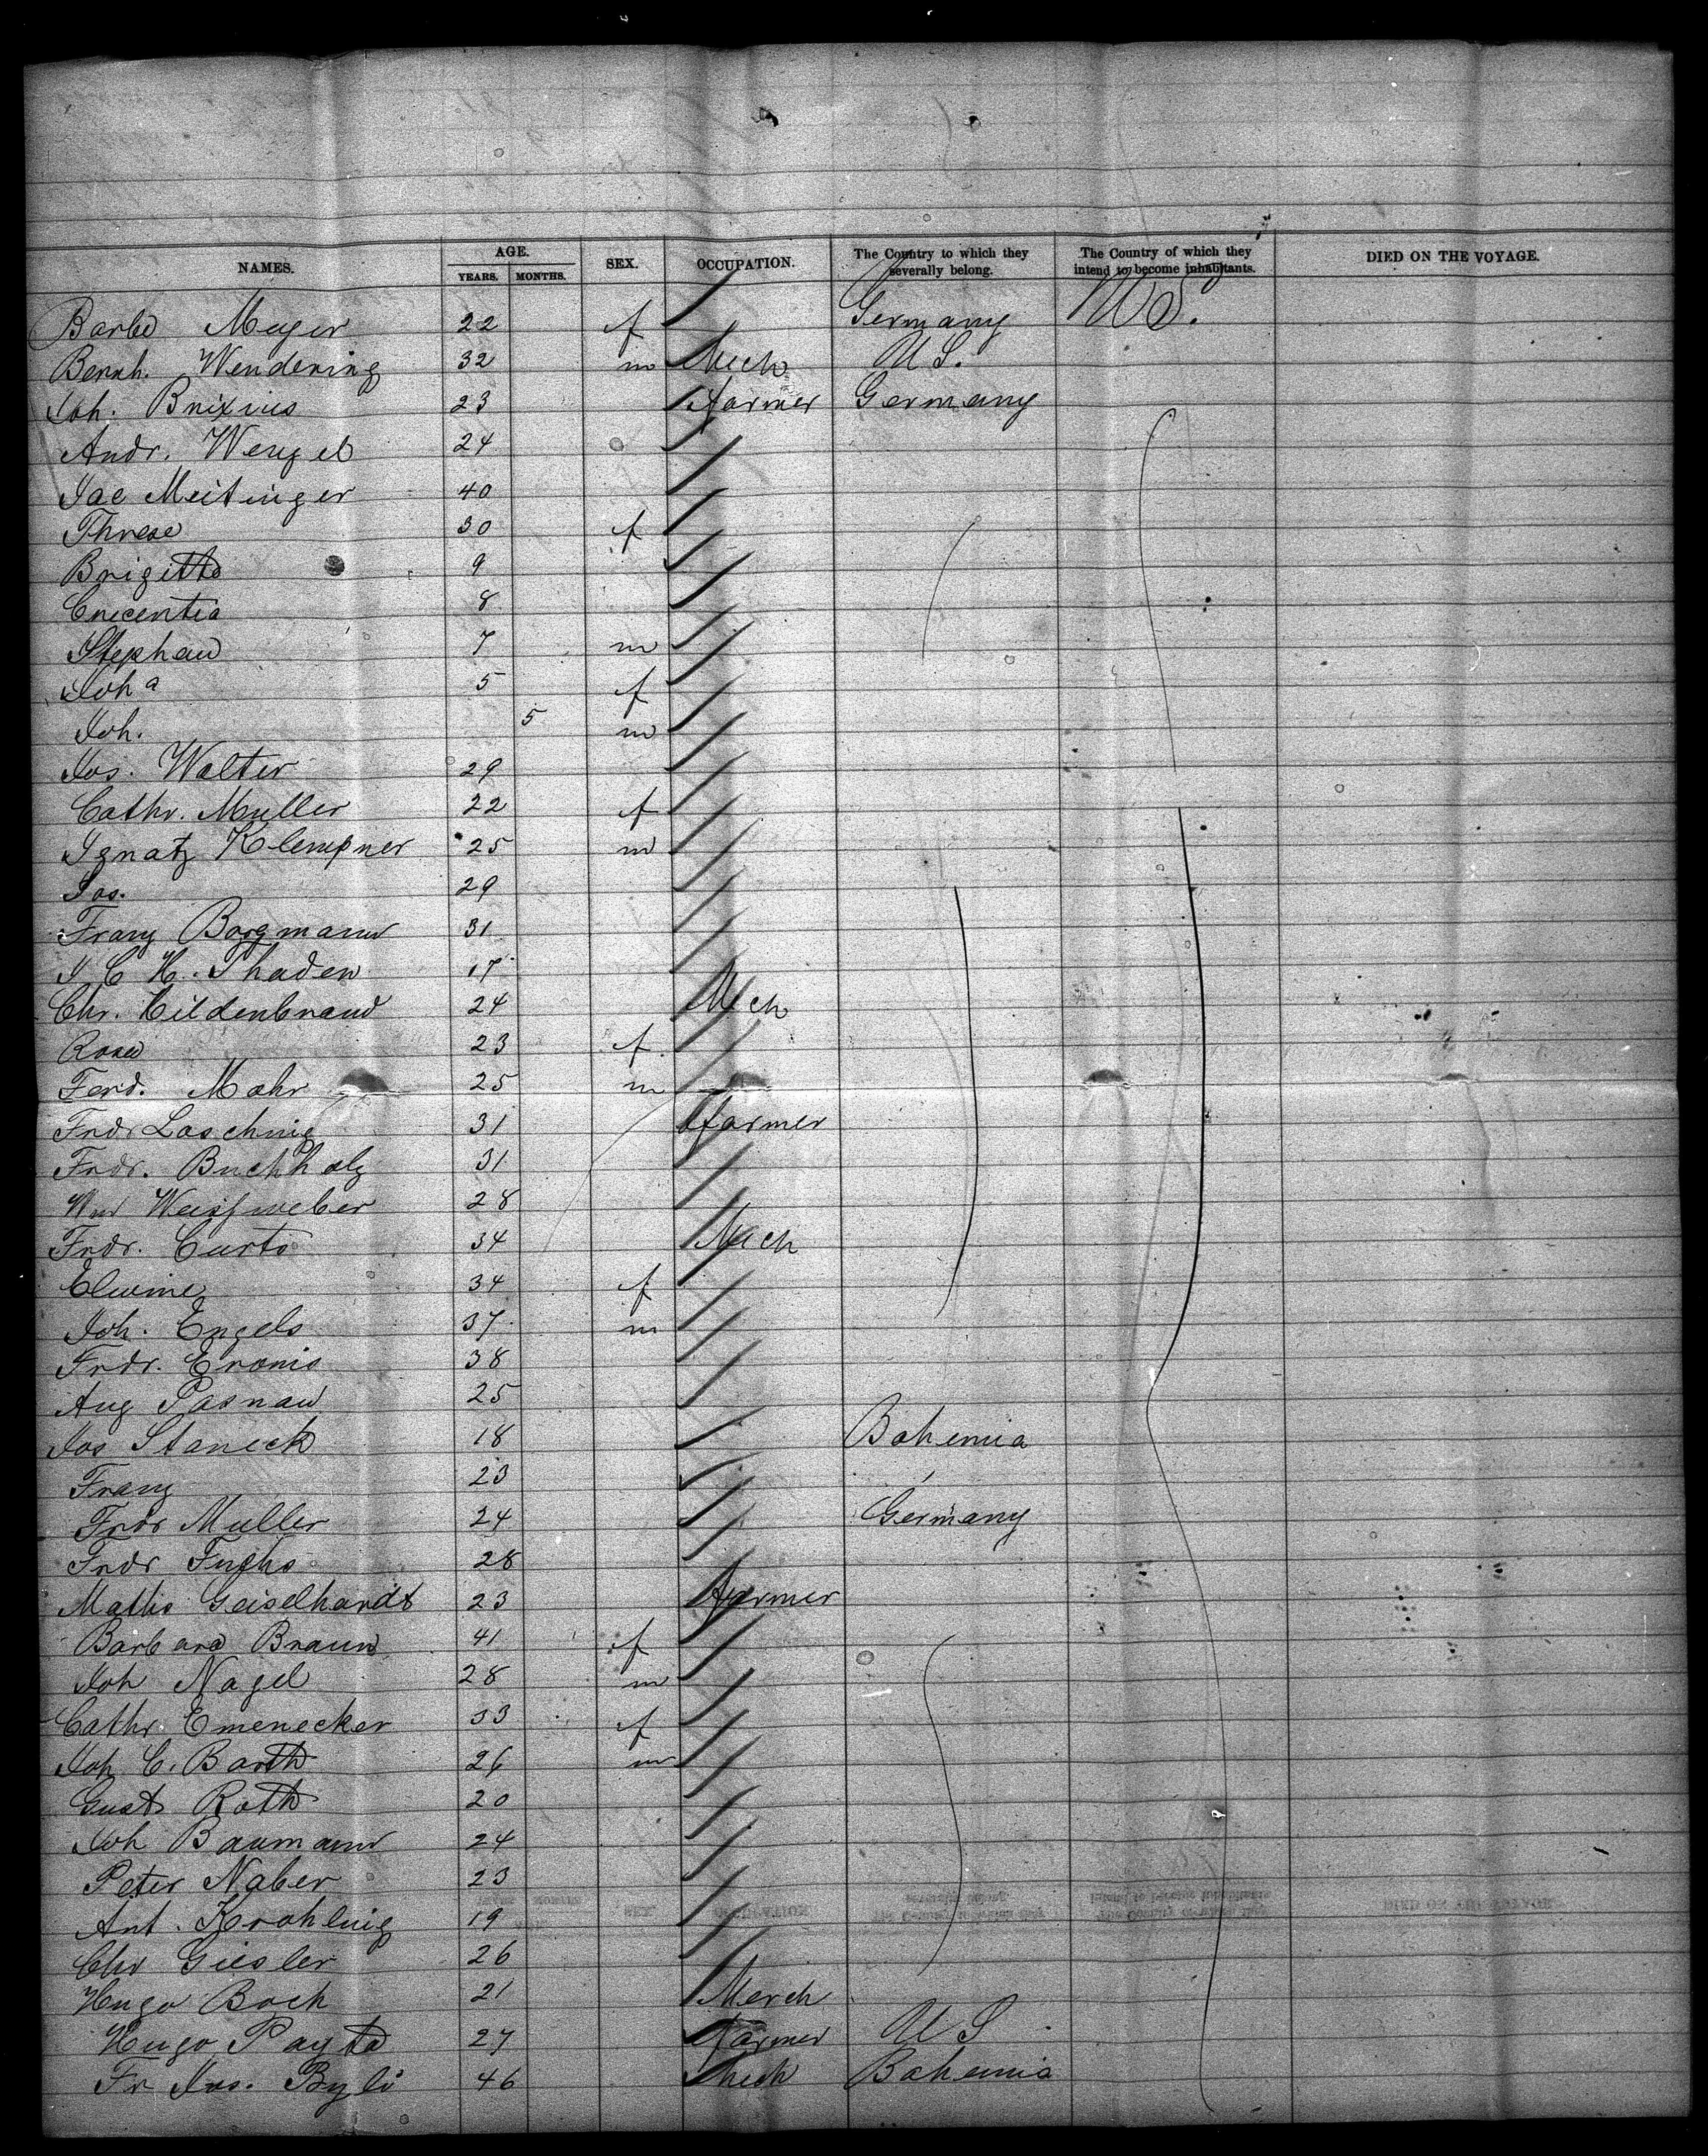 NAMES. AGE. SEX. OCCUPATION. The Country to which they severally belong. The Country of which they intend to become inhabitants. DIED ON THE VOYAGE.
YEARS. MONTHS.
Barbe Meyer 22 f Germany U S.
Bernh. Wendering 32 m Mech U S.
Joh. Brixius 23 Farmer Germany
Andr. Wengel 24
Jac Meitinger 40
Threse 30 f
Brigitta 9
Crecentia 8
Stephan 7 m
Joh a 5 f
Joh. 5 m
Jos. Walter 29
Cathr. Muller 22 f
Ignatz Klempner 25 m
Jos. 29
Franz Borgmann 31
J C H. Thaden 17
Chr. Hildenbrand 24 Mech
Rosa 23 f
Ferd. Mohr 25 m
Frdr Lasching 31 Farmer
Frdr. Buchholz 31
Wm Weissweber 28
Frdr. Curto 34 Mech
Elwine 34 f
Joh. Engels 37 m
Frdr. Eronis 38
Aug Pasnau 25
Jos Staneck 18 Bohemia
Franz 23
Frdr Muller 24 Germany
Frdr Fuchs 28
Maths Geiselhardt 23 Farmer
Barbara Braun 41 f
Joh Nagel 28 m
Cathr. Emenecker 33 f
Joh C. Barth 26 m
Gust Roth 20
Joh Baumann 24
Peter Naber 23
Ant. Krohling 19
Chr Giesler 26
Hugo Boch 21 Merch
Hugo 27 Farmer U S
Fr Jos. 46 Mech Bohemia